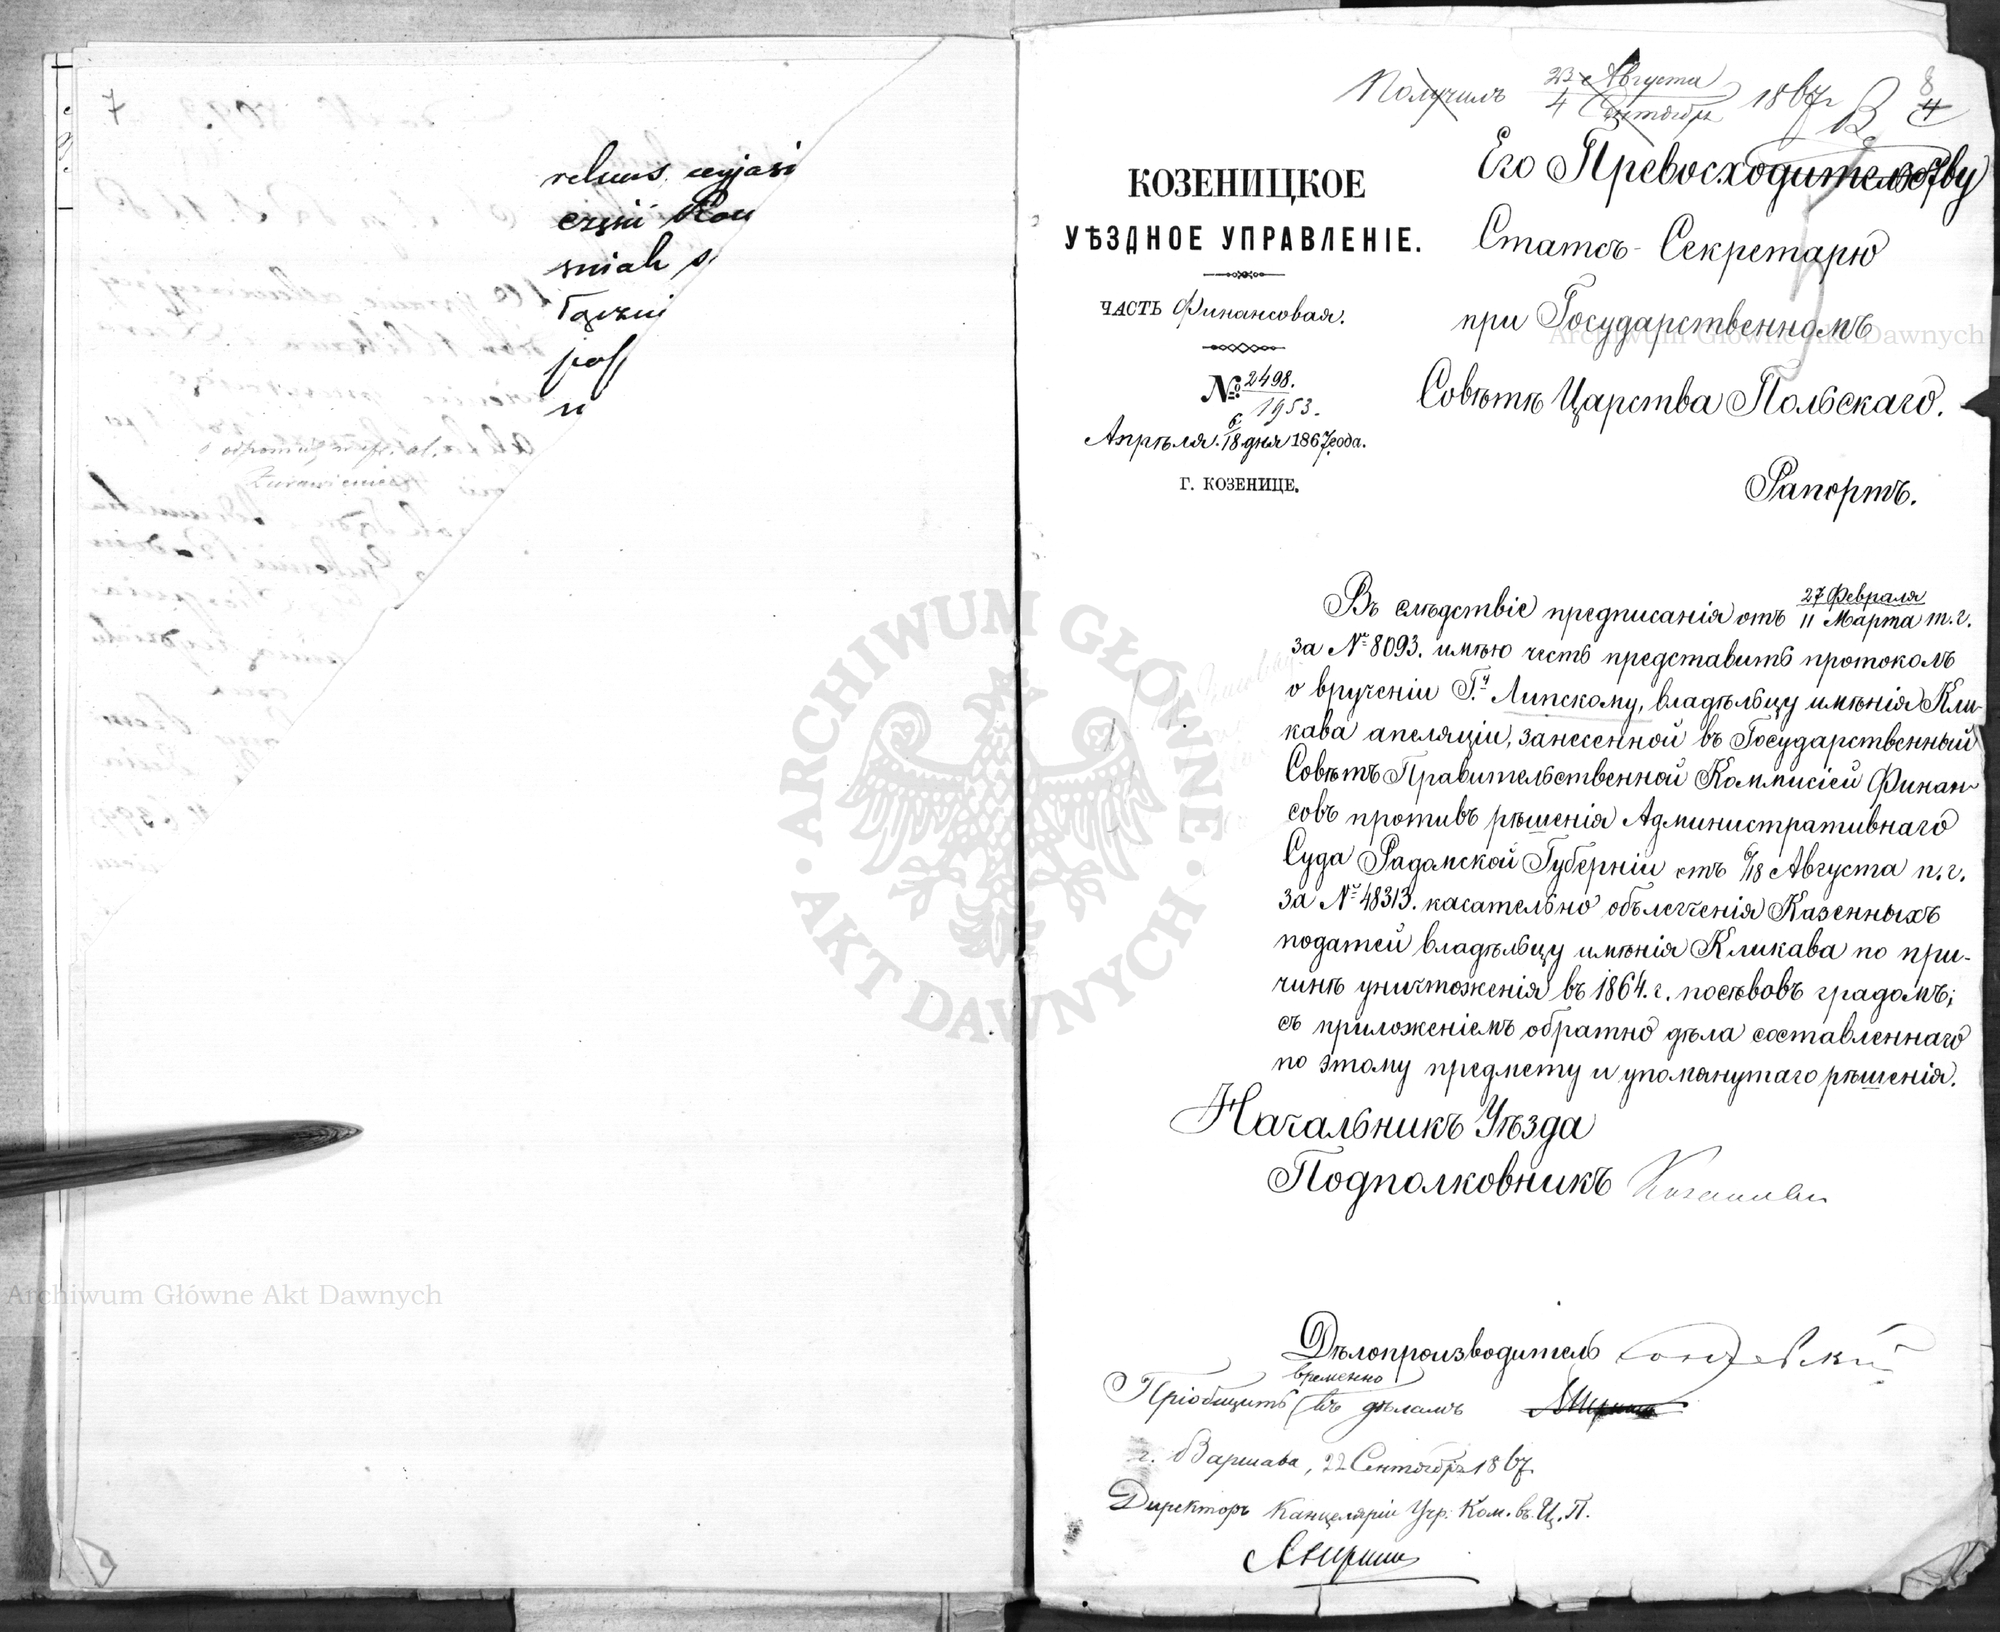 7
relnus
сzęśii Kou
sniah s
Żurawieniec
8
4
Получилъ 23 Августа
4 Сентября 1867 г
Его Превосходительству
КОЗЕНИЦКОЕ
УѢЗДНОЕ УПРАВЛЕНІЕ.
ЧАСТЬ Финансовая.
№ 2498.
1953.
Апрѣля 6/18 дня 1867 года.
Г. КОЗЕНИЦЕ.
Статсъ-Секретарю
при Государственномъ
Совѣтѣ Царства Польскаго.
Рапортъ.
Въ слѣдствіе предписанія отъ 27 Февраля
11 Марта т.г.
за № 8093. имѣю честь представить протоколъ
о врученіи Гну Липскому, владѣльцу имѣнія Кли-
кава апеляціи, занесенной въ Государственный
Совѣтъ Правительственной Коммисіей Финан-
совъ противъ рѣшенія Административнаго
Суда Радомской Губерніи отъ 6/18 Августа п.г.
за № 48313. касательно облегченія Казенныхъ
податей владѣльцу имѣнія Кликава по при-
чинѣ уничтоженія въ 1864. г. посѣвовъ градомъ;
съ приложеніемъ обратно дѣла составленнаго
по этому предмету и упомянутаго рѣшенія.
Начальникъ Уѣзда
Подполковникъ
Дѣлопроизводитель
временно
Пріобщить къ дѣламъ
г. Варшава, 22 Сентября 1867
Директоръ Канцеляріи Учр. Ком. въ Ц. П.
ARCHIWUM GŁÓWNE · AKT DAWNYCH ·
Archiwum Główne Akt Dawnych
Archiwum Główne Akt Dawnych